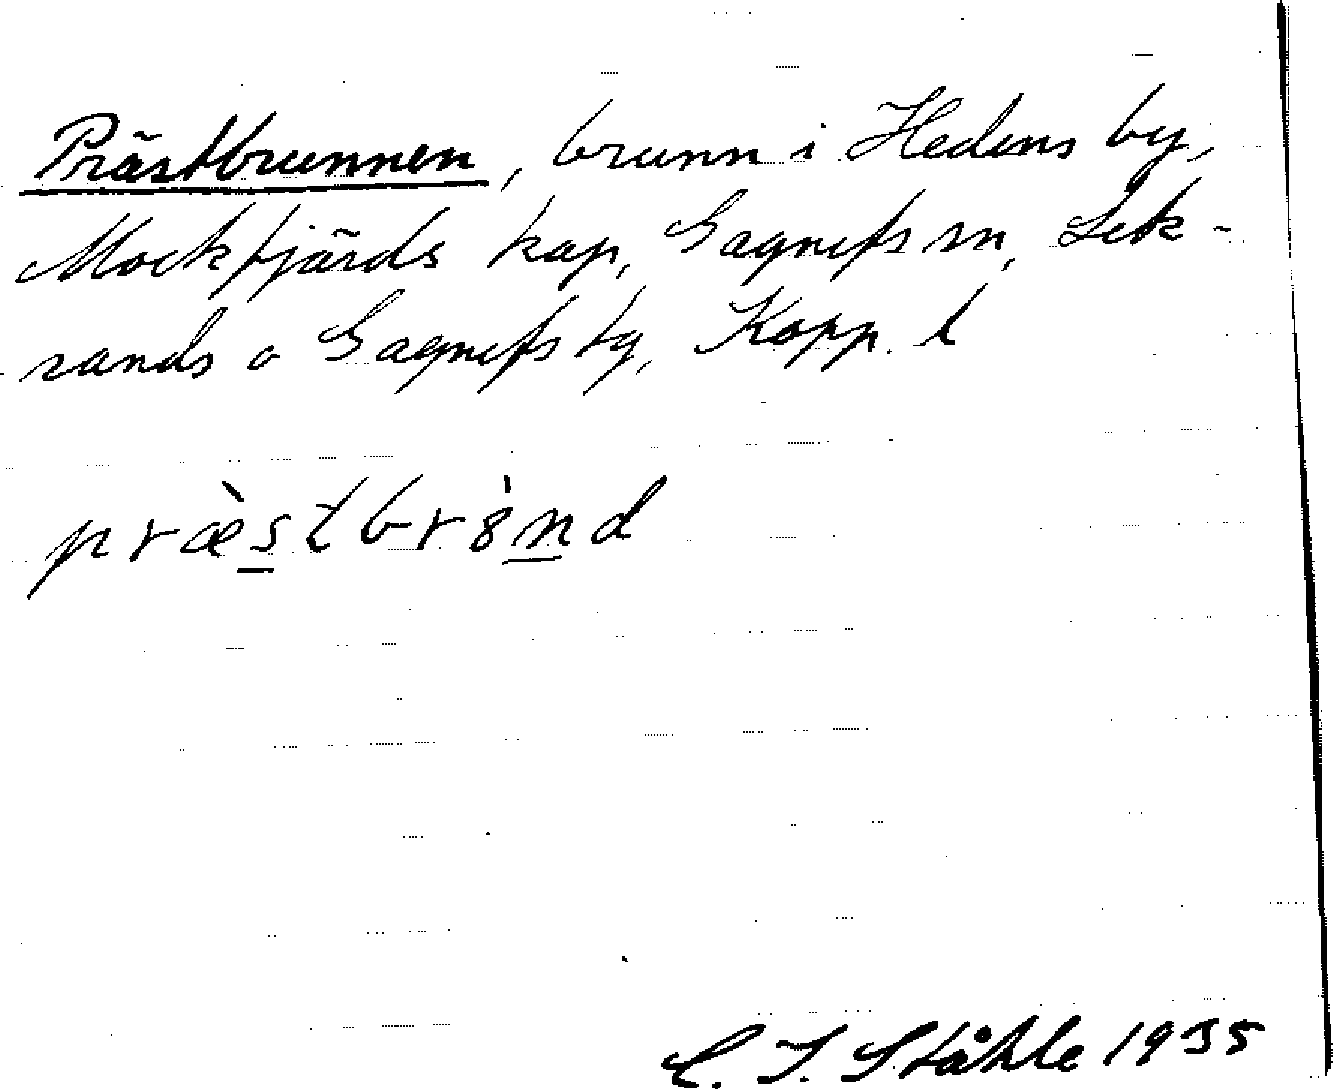 Prästbrunnen, brunn i Hedens by,
Mockfjärds kap, Gagnefs sn, Lek-
sands o Gagnefs tg, Kopp. l
præ̀stbrȯnd
C. I. Ståhle 1935